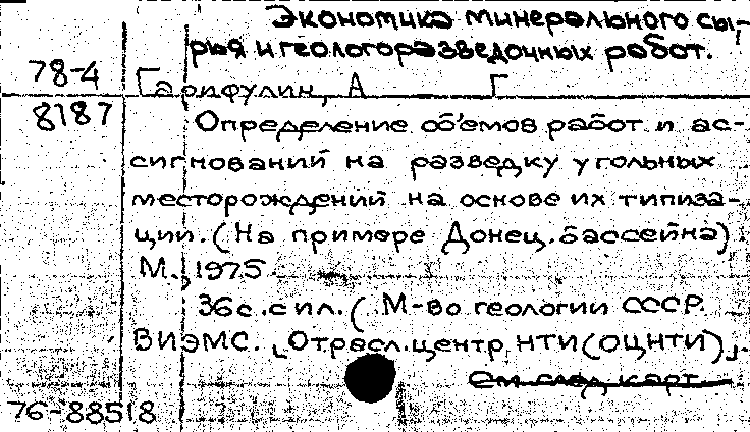 Экономика минерального сы-
рья и геологоразведочных работ.
78-4 Гарифулин, А Г
8187
Определение объемов работ и ас-
сигнований на разведку угольных
месторождений на основе их типиза-
ции. (На примере Донец. бассейна).
М., 1975
36 с. с ил. (М-во геологии СССР.
ВИЭМС. Отрасл. центр НТИ (ОЦНТИ)).
См. след. карт.
76-88518